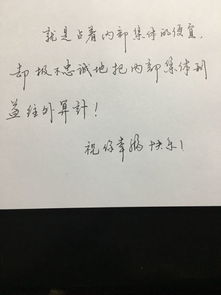 就是占着内部集体的便宜,
却极不忠诚地把内部集体利
益往外算计!
祝你幸福快乐!